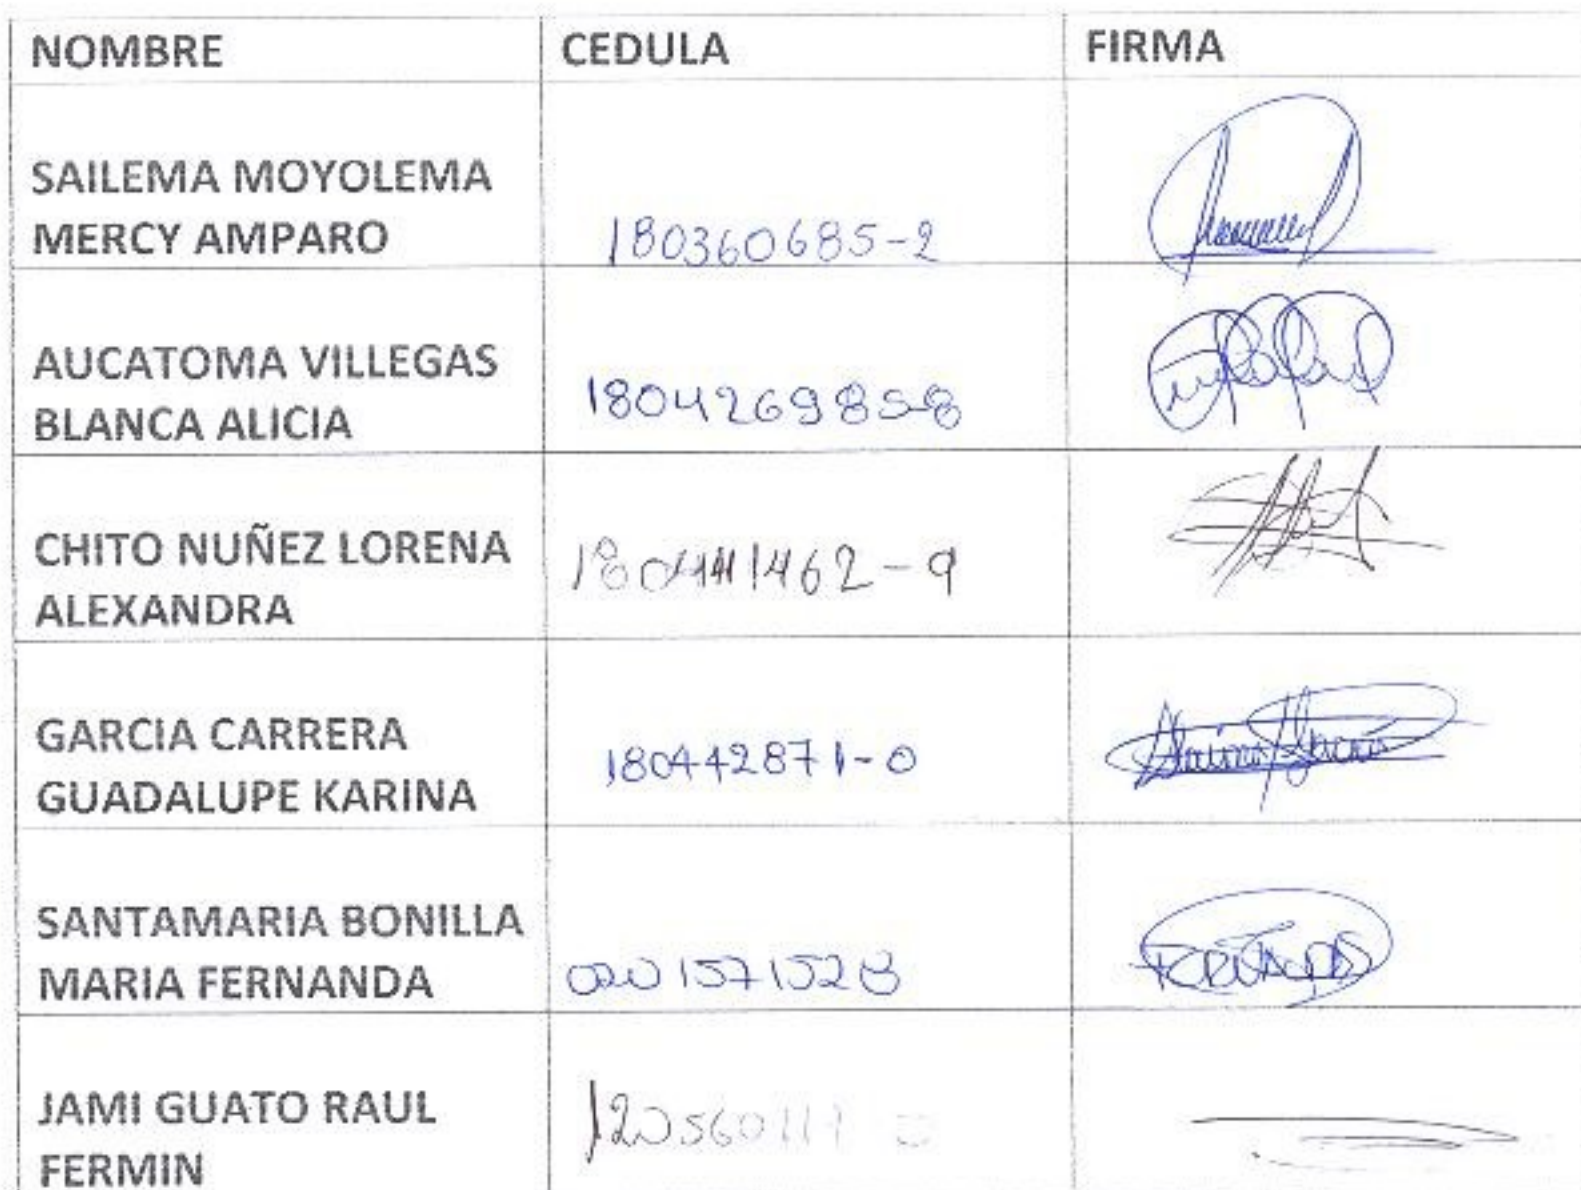 NOMBRE CEDULA FIRMA
SAILEMA MOYOLEMA
MERCY AMPARO 180360685-2
AUCATOMA VILLEGAS
BLANCA ALICIA 180426985-8
CHITO NUÑEZ LORENA
ALEXANDRA 180441462-9
GARCIA CARRERA
GUADALUPE KARINA 180442871-0
SANTAMARIA BONILLA
MARIA FERNANDA 0201571528
JAMI GUATO RAUL
FERMIN